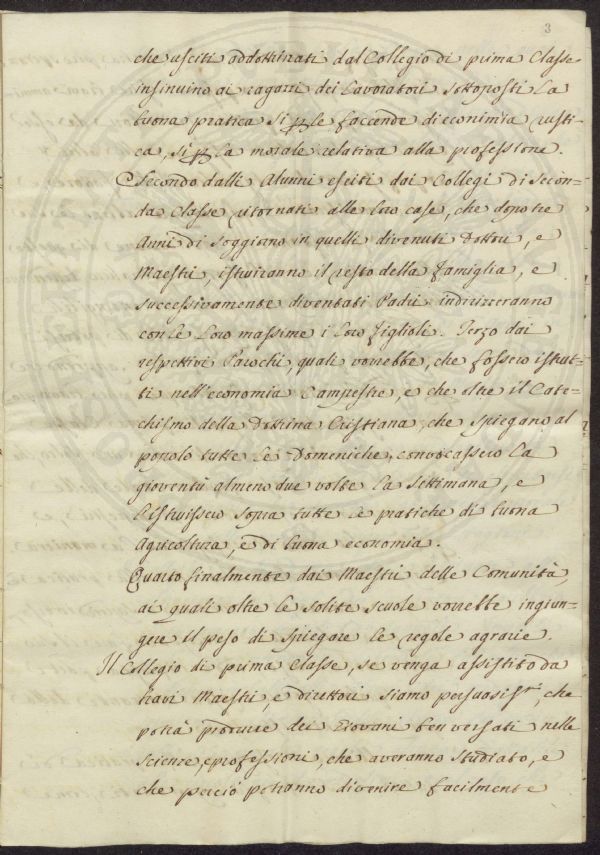 3
che usciti addottrinati dal Collegio di prima Classe
insinuino ai ragazzi dei Lavoratori sottoposti La
buona pratica sì p le faccende di econimia rusti-
ca, sì p La morale relativa alla professione.
Secondo dalli Alunni esciti dai Collegi di Secon-
da Classe ritornati alle Loro case, che dopo tre
Anni di Soggiorno in quelli divenuti Dottori, e
Maestri, istruiranno il resto della famiglia, e
successivamente diventati Padri indirizzeranno
con Le Loro massime i Loro figlioli. Terzo dai
respettivi Parochi, quali vorrebbe, che fossero istrut-
ti nell'economia Campestre, e che oltre il Cate-
chismo della Dottrina Cristiana, che spiegano al
popolo tutte Le Domeniche, convocassero La
gioventù almeno due volte La Settimana, e
L'istruissero sopra tutte Le pratiche di buona
Agricoltura, e di buona economia.
Quarto finalmente dai Maestri delle Comunità,
ai quali oltre Le solite scuole vorrebbe ingiun-
gere il peso di spiegare Le regole agrarie.
Il Collegio di prima Classe, se venga assistito da
bravi Maestri, e direttori siamo persuasiss.mi, che
potrà produrre dei Giovani ben versati nelle
Scienze, e professioni, che averanno Studiato, e
che perciò potranno divenire facilmente